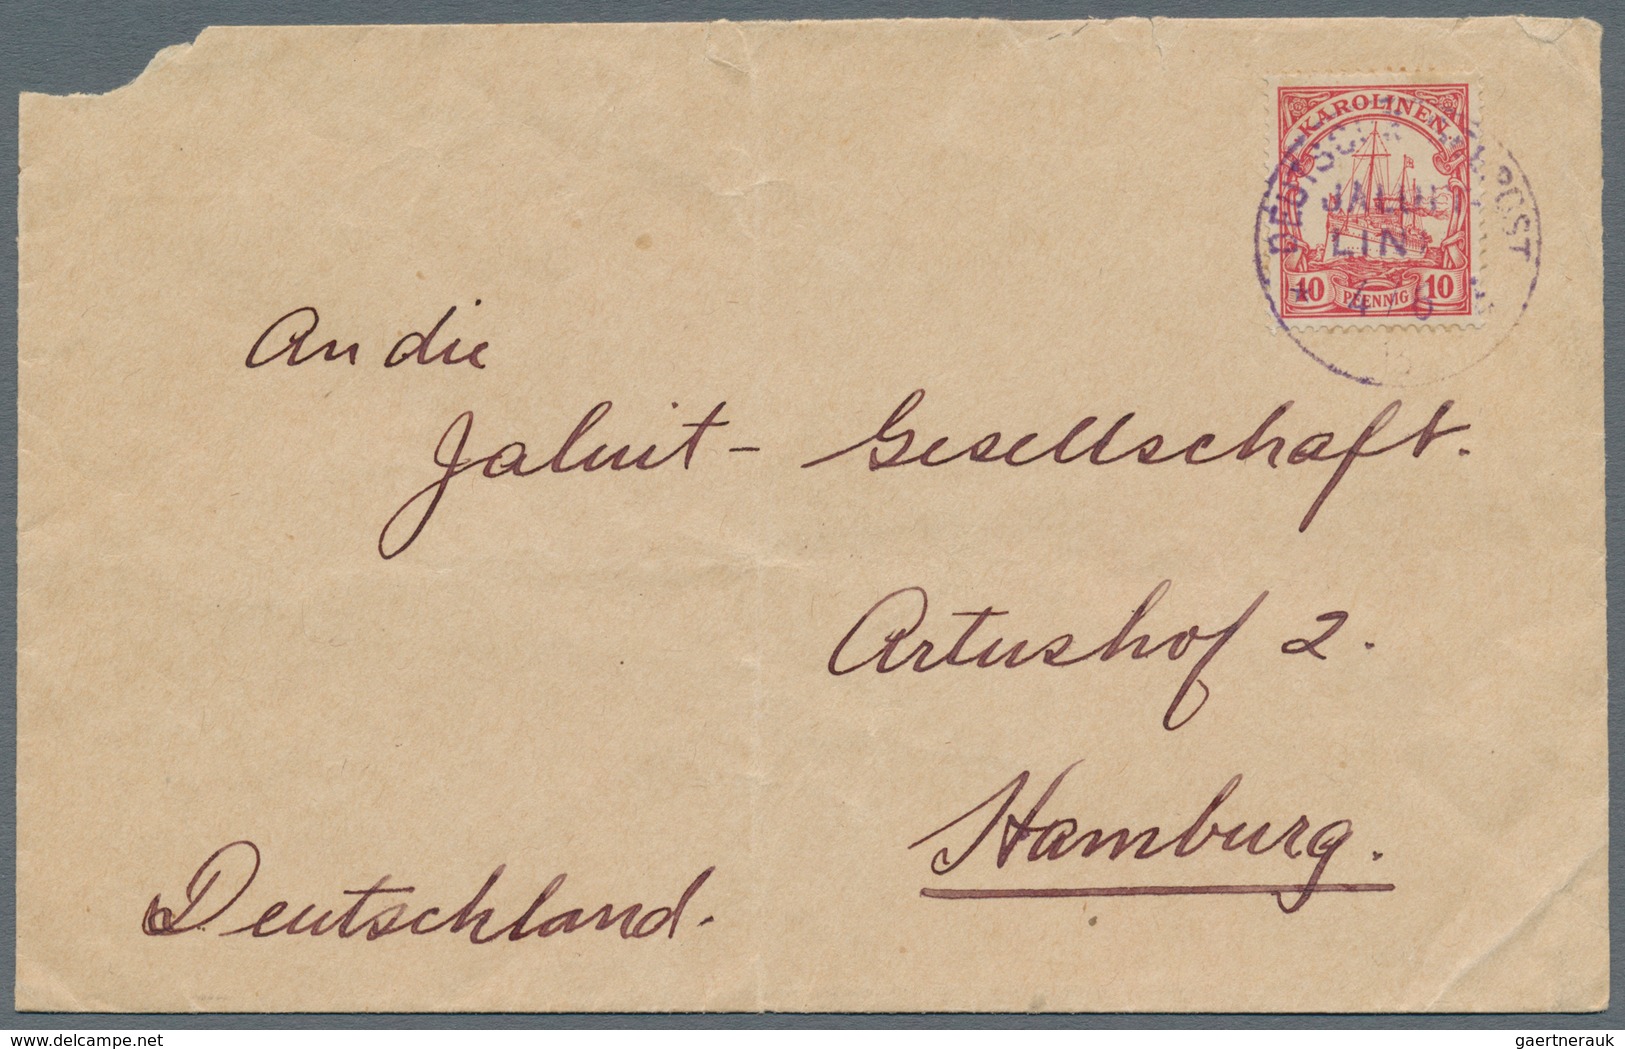 KAROLINEN
DEUTSCHE SEEPOST
JALUIT
LINIE
10 PFENNIG 10
An die
Jaluit - Gesellschaft.
Artushof 2.
Hamburg.
Deutschland.
delcampe.net
gaertnerauk